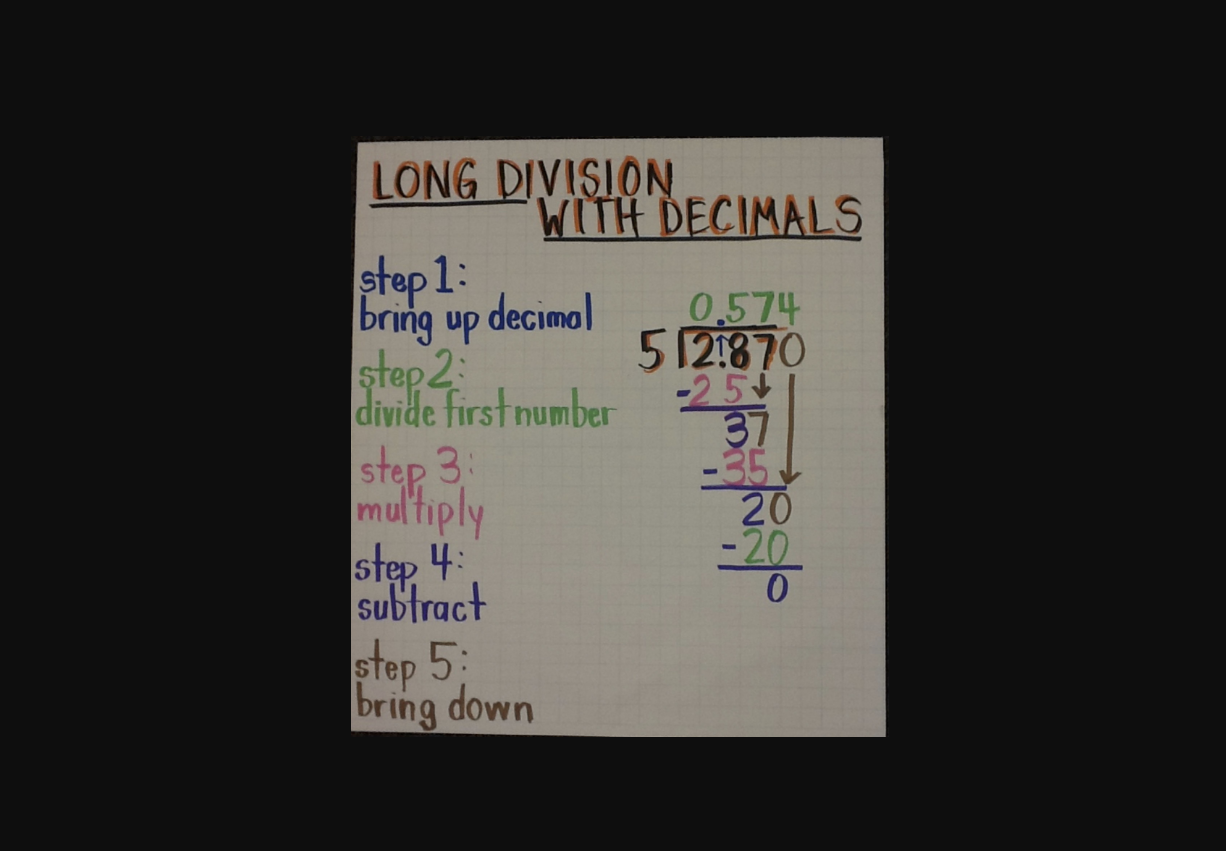 LONG DIVISION
WITH DECIMALS
step 1:
bring up decimal
step 2:
divide first number
step 3:
multiply
step 4:
subtract
step 5:
bring down
0.574
5 2.870
-25
37
-35
20
-20
0